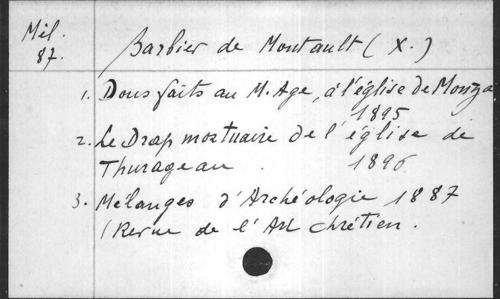 Mél.
87.
Barbier de Montault (X.)
1. Dons faits au M. Age, à l'église de Monza
1895
2. Le Drap mortuaire de l'église de
Thurageau. 1896
3. Mélanges d'Archéologie 1887
(Revue de l'Art chrétien.